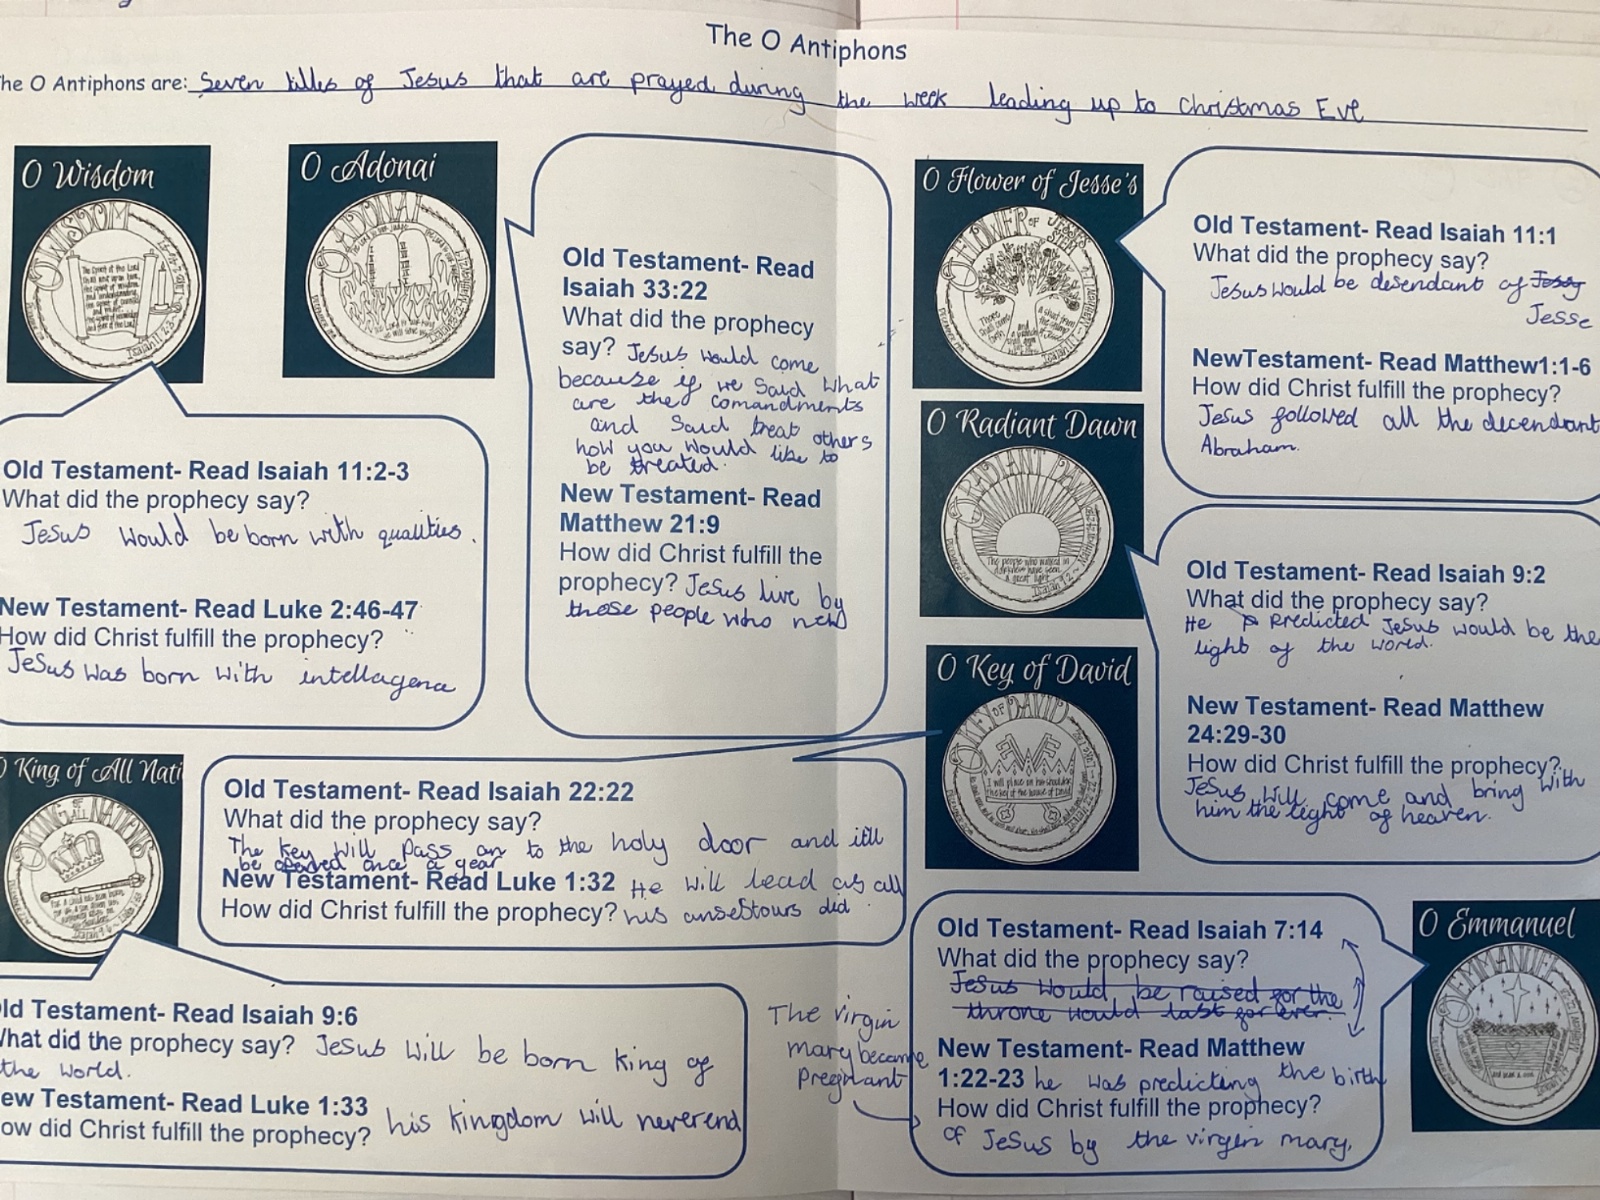 The O Antiphons
he O Antiphons are: Seven titles of Jesus that are prayed during the week leading up to Christmas Eve
O Wisdom
O Adonai
Old Testament- Read Isaiah 11:2-3
What did the prophecy say?
Jesus would be born with qualities.
New Testament- Read Luke 2:46-47
How did Christ fulfill the prophecy?
Jesus was born with intellagence
Old Testament- Read
Isaiah 33:22
What did the prophecy
say? Jesus would come
because if we said what
are the comandments
and said treat others
how you would like to
be treated.
New Testament- Read
Matthew 21:9
How did Christ fulfill the
prophecy? Jesus live by
these people who new
O Flower of Jesse's
Old Testament- Read Isaiah 11:1
What did the prophecy say?
Jesus would be desendant of Jessy
Jesse
NewTestament- Read Matthew1:1-6
How did Christ fulfill the prophecy?
Jesus followed all the decendant
Abraham.
O Radiant Dawn
Old Testament- Read Isaiah 9:2
What did the prophecy say?
He predicted Jesus would be the
light of the world.
New Testament- Read Matthew
24:29-30
How did Christ fulfill the prophecy?
Jesus will come and bring with
him the light of heaven.
O Key of David
Old Testament- Read Isaiah 22:22
What did the prophecy say?
The key will pass on to the holy door and itll
be opened once a year
New Testament- Read Luke 1:32 He will lead as all
How did Christ fulfill the prophecy? his ansestours did.
O King of All Nati
ld Testament- Read Isaiah 9:6
hat did the prophecy say? Jesus will be born king of
the world.
ew Testament- Read Luke 1:33
ow did Christ fulfill the prophecy? his kingdom will neverend
O Emmanuel
Old Testament- Read Isaiah 7:14
What did the prophecy say?
Jesus would be raised for the
throne would last for ever.
The virgin
mary became
Pregnant
New Testament- Read Matthew
1:22-23 he was predicting the birth
How did Christ fulfill the prophecy?
of Jesus by the virgin mary.